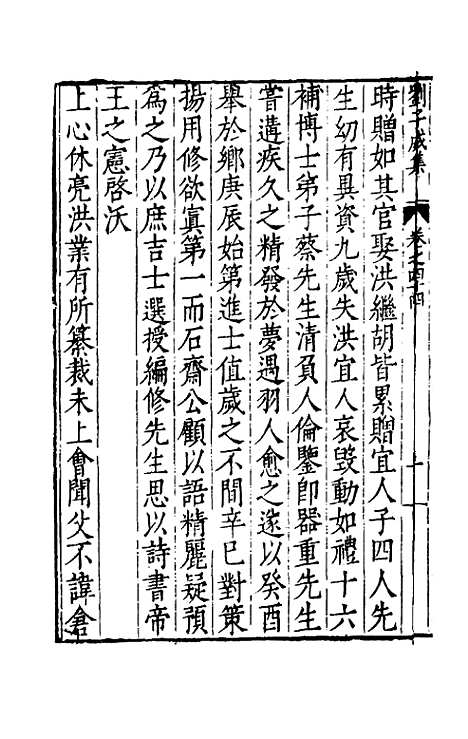 劉子威集 卷之四十四 十
時贈如其官娶洪繼胡皆累贈宜人子四人先
生幼有異資九歲失洪宜人哀毀動如禮十六
補博士弟子蔡先生清負人倫鑒卽器重先生
嘗遘疾久之精發於夢遇羽人愈之遂以癸酉
舉於鄉庚辰始第進士值歲之不間辛巳對策
揚用修欲寘第一而石齋公顧以語精麗疑預
爲之乃以庶吉士選授編修先生思以詩書帝
王之憲啓沃
上心休亮洪業有所纂裁未上會聞父不諱倉